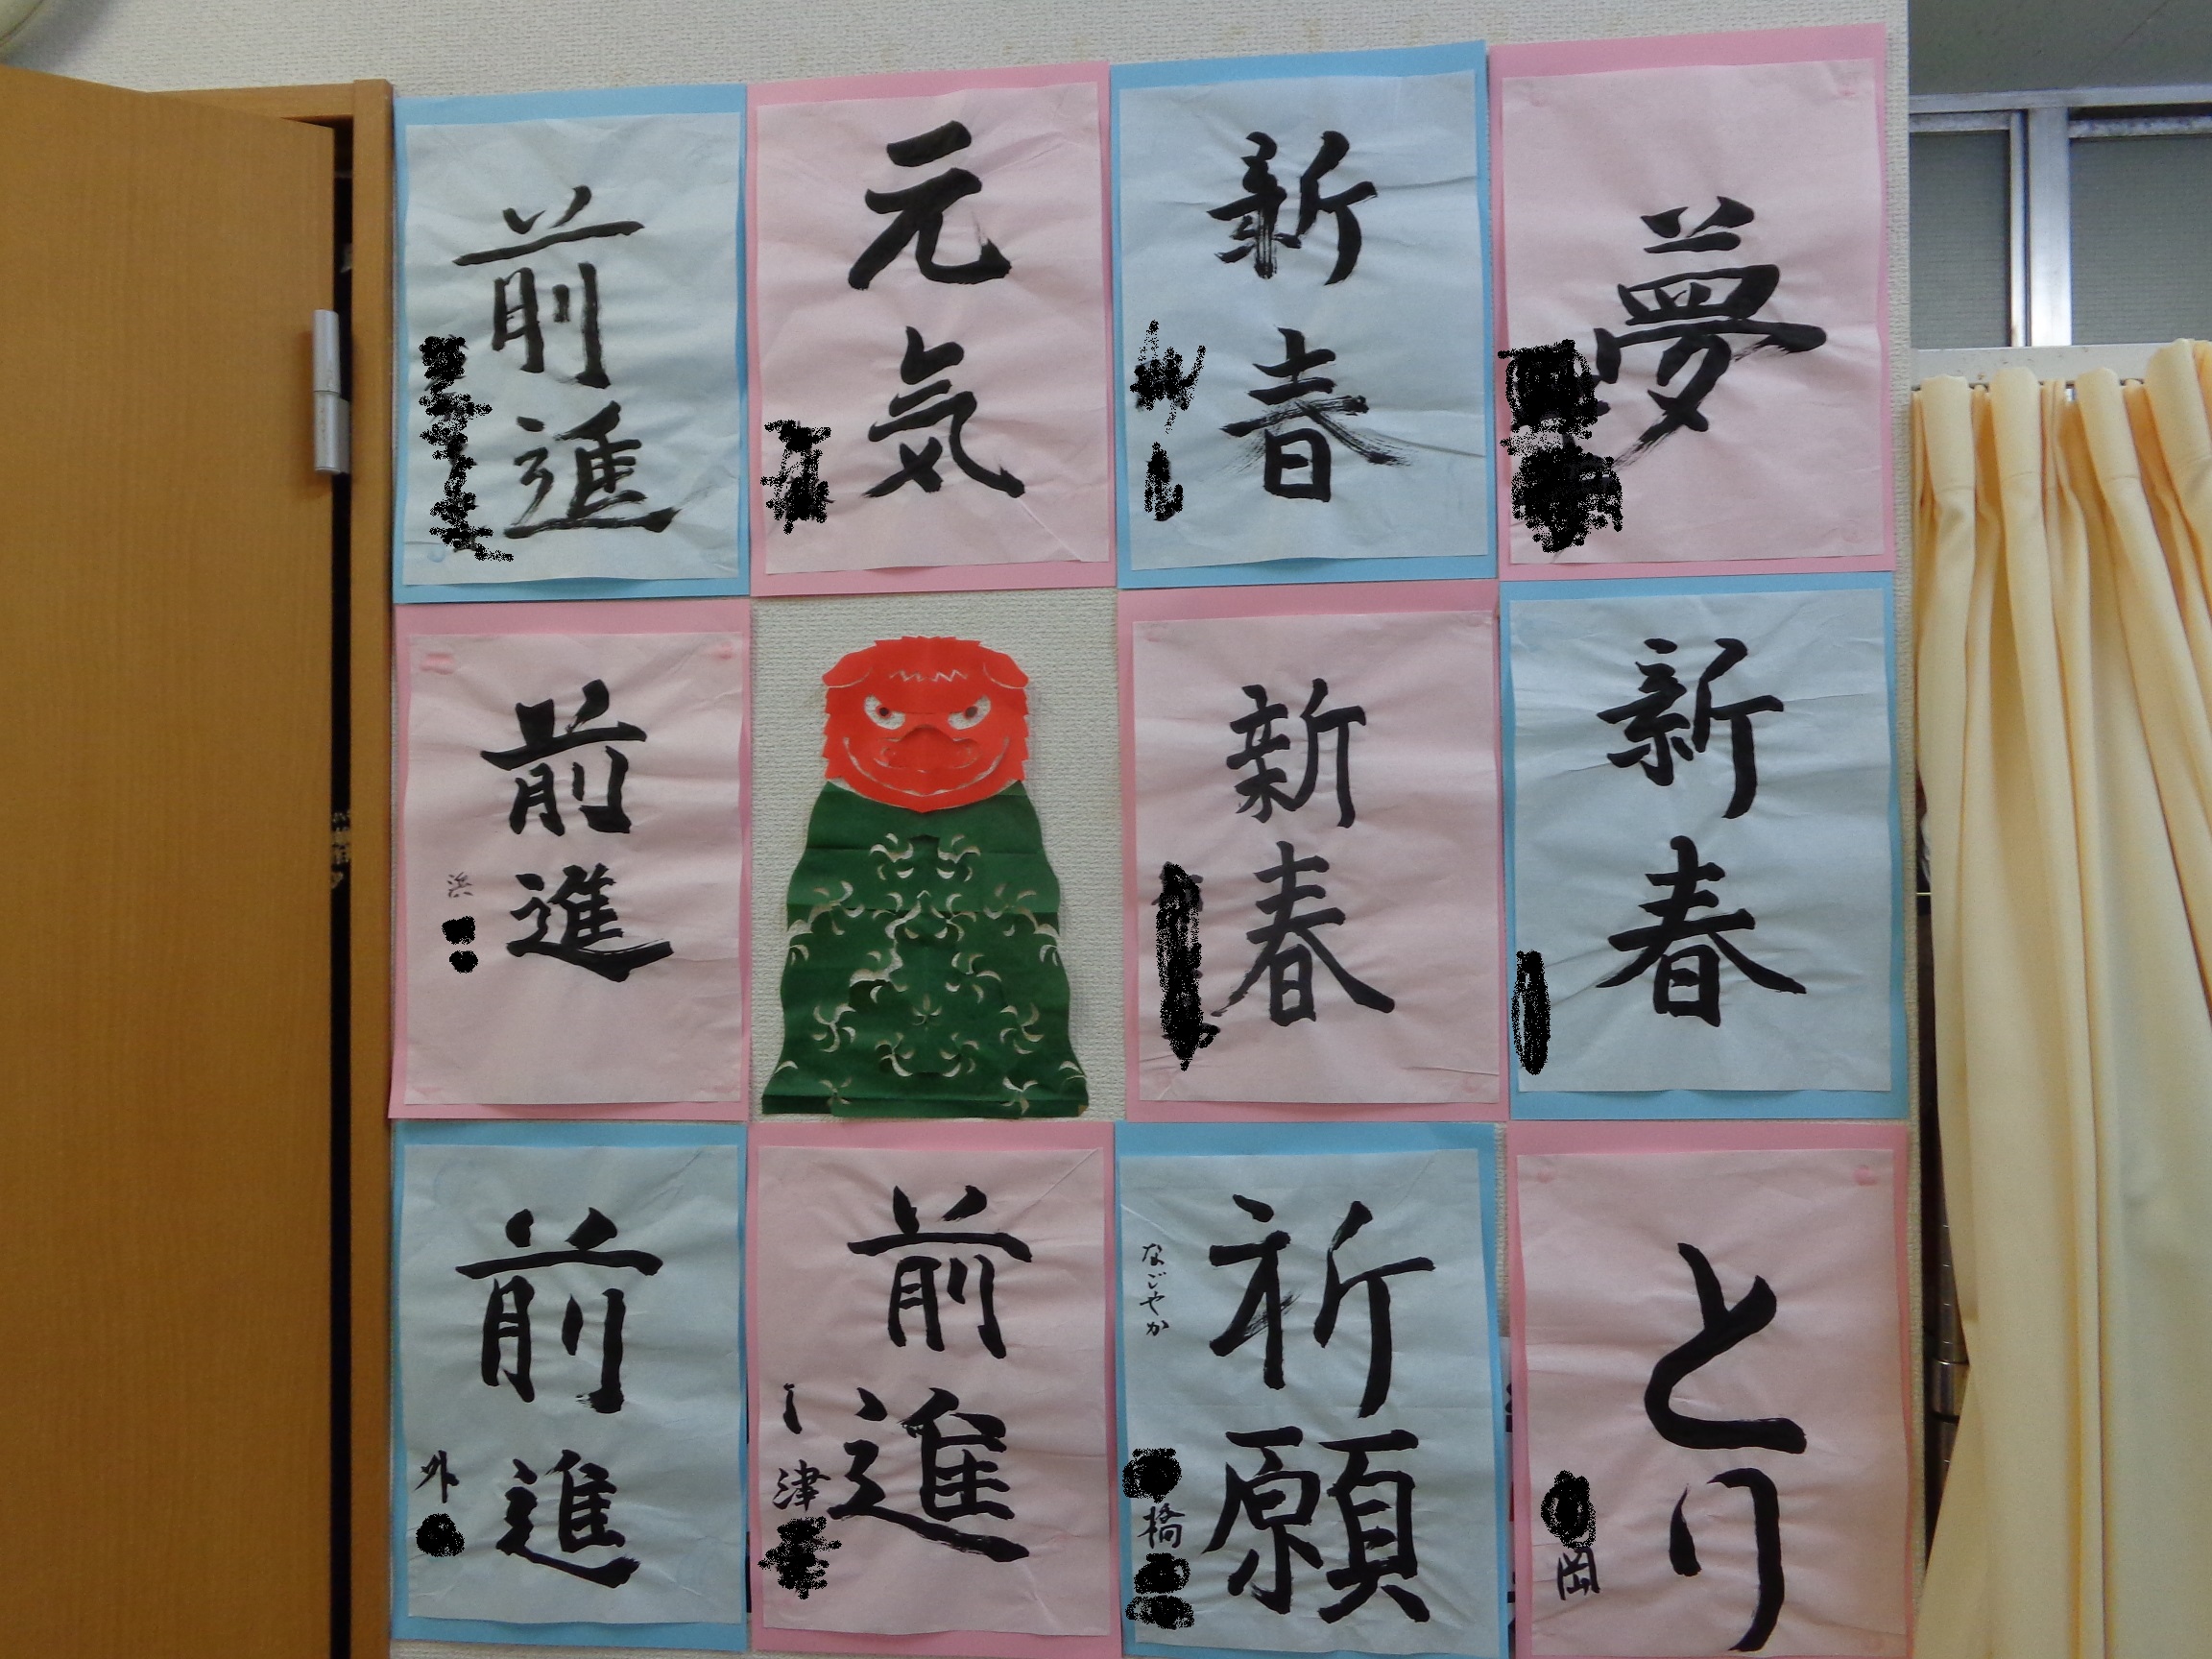 前進
元気
新春
夢
前進
浜
新春
新春
前進
外
前進
津
祈願
なごやか
橋
とり
岡